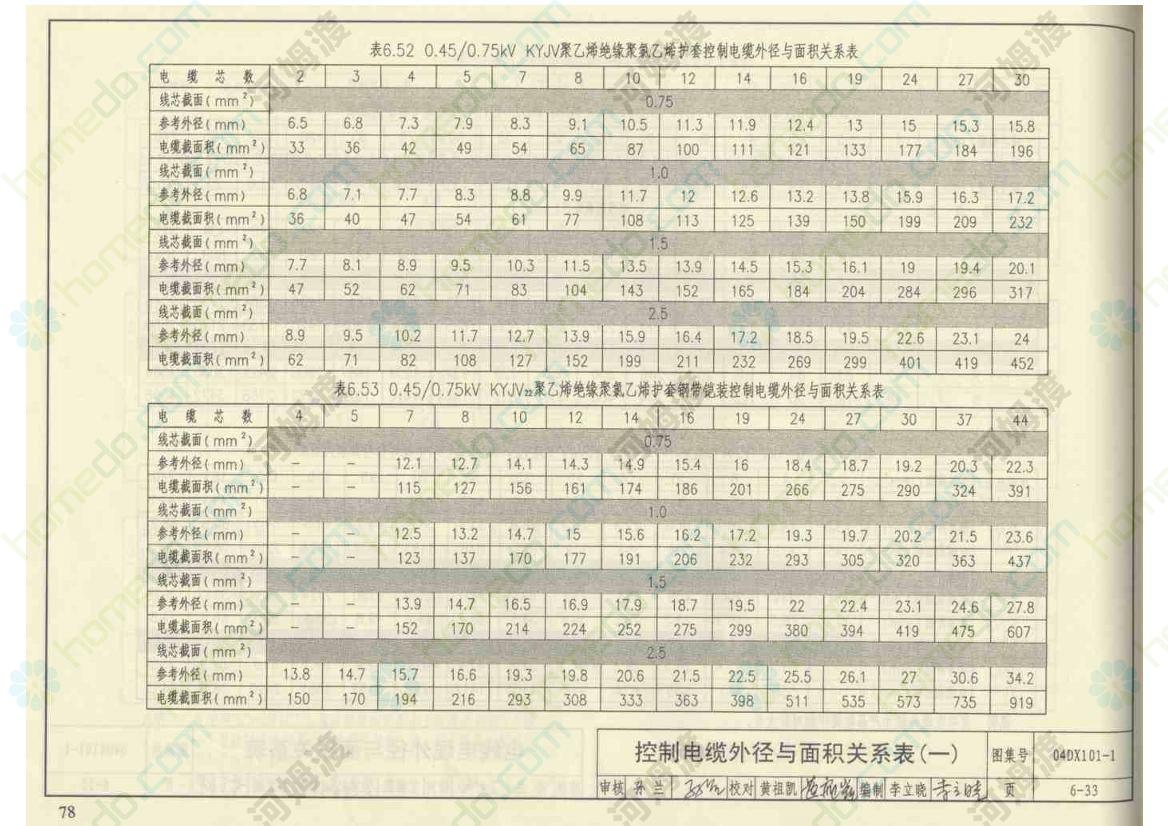 表6.52 0.45/0.75kV KYJV聚乙烯绝缘聚氯乙烯护套控制电缆外径与面积关系表
电缆芯数 2 3 4 5 7 8 10 12 14 16 19 24 27 30
线芯截面(mm²) 0.75
参考外径(mm) 6.5 6.8 7.3 7.9 8.3 9.1 10.5 11.3 11.9 12.4 13 15 15.3 15.8
电缆截面积(mm²) 33 36 42 49 54 65 87 100 111 121 133 177 184 196
线芯截面(mm²) 1.0
参考外径(mm) 6.8 7.1 7.7 8.3 8.8 9.9 11.7 12 12.6 13.2 13.8 15.9 16.3 17.2
电缆截面积(mm²) 36 40 47 54 61 77 108 113 125 139 150 199 209 232
线芯截面(mm²) 1.5
参考外径(mm) 7.7 8.1 8.9 9.5 10.3 11.5 13.5 13.9 14.5 15.3 16.1 19 19.4 20.1
电缆截面积(mm²) 47 52 62 71 83 104 143 152 165 184 204 284 296 317
线芯截面(mm²) 2.5
参考外径(mm) 8.9 9.5 10.2 11.7 12.7 13.9 15.9 16.4 17.2 18.5 19.5 22.6 23.1 24
电缆截面积(mm²) 62 71 82 108 127 152 199 211 232 269 299 401 419 452
表6.53 0.45/0.75kV KYJV₂₂聚乙烯绝缘聚氯乙烯护套钢带铠装控制电缆外径与面积关系表
电缆芯数 4 5 7 8 10 12 14 16 19 24 27 30 37 44
线芯截面(mm²) 0.75
参考外径(mm) – – 12.1 12.7 14.1 14.3 14.9 15.4 16 18.4 18.7 19.2 20.3 22.3
电缆截面积(mm²) – – 115 127 156 161 174 186 201 266 275 290 324 391
线芯截面(mm²) 1.0
参考外径(mm) – – 12.5 13.2 14.7 15 15.6 16.2 17.2 19.3 19.7 20.2 21.5 23.6
电缆截面积(mm²) – – 123 137 170 177 191 206 232 293 305 320 363 437
线芯截面(mm²) 1.5
参考外径(mm) – – 13.9 14.7 16.5 16.9 17.9 18.7 19.5 22 22.4 23.1 24.6 27.8
电缆截面积(mm²) – – 152 170 214 224 252 275 299 380 394 419 475 607
线芯截面(mm²) 2.5
参考外径(mm) 13.8 14.7 15.7 16.6 19.3 19.8 20.6 21.5 22.5 25.5 26.1 27 30.6 34.2
电缆截面积(mm²) 150 170 194 216 293 308 333 363 398 511 535 573 735 919
控制电缆外径与面积关系表(一) 图集号 04DX101-1
审核 孙兰 校对 黄祖凯 编制 李立晓 李立晓 页 6-33
78
homedo.com
河姆渡